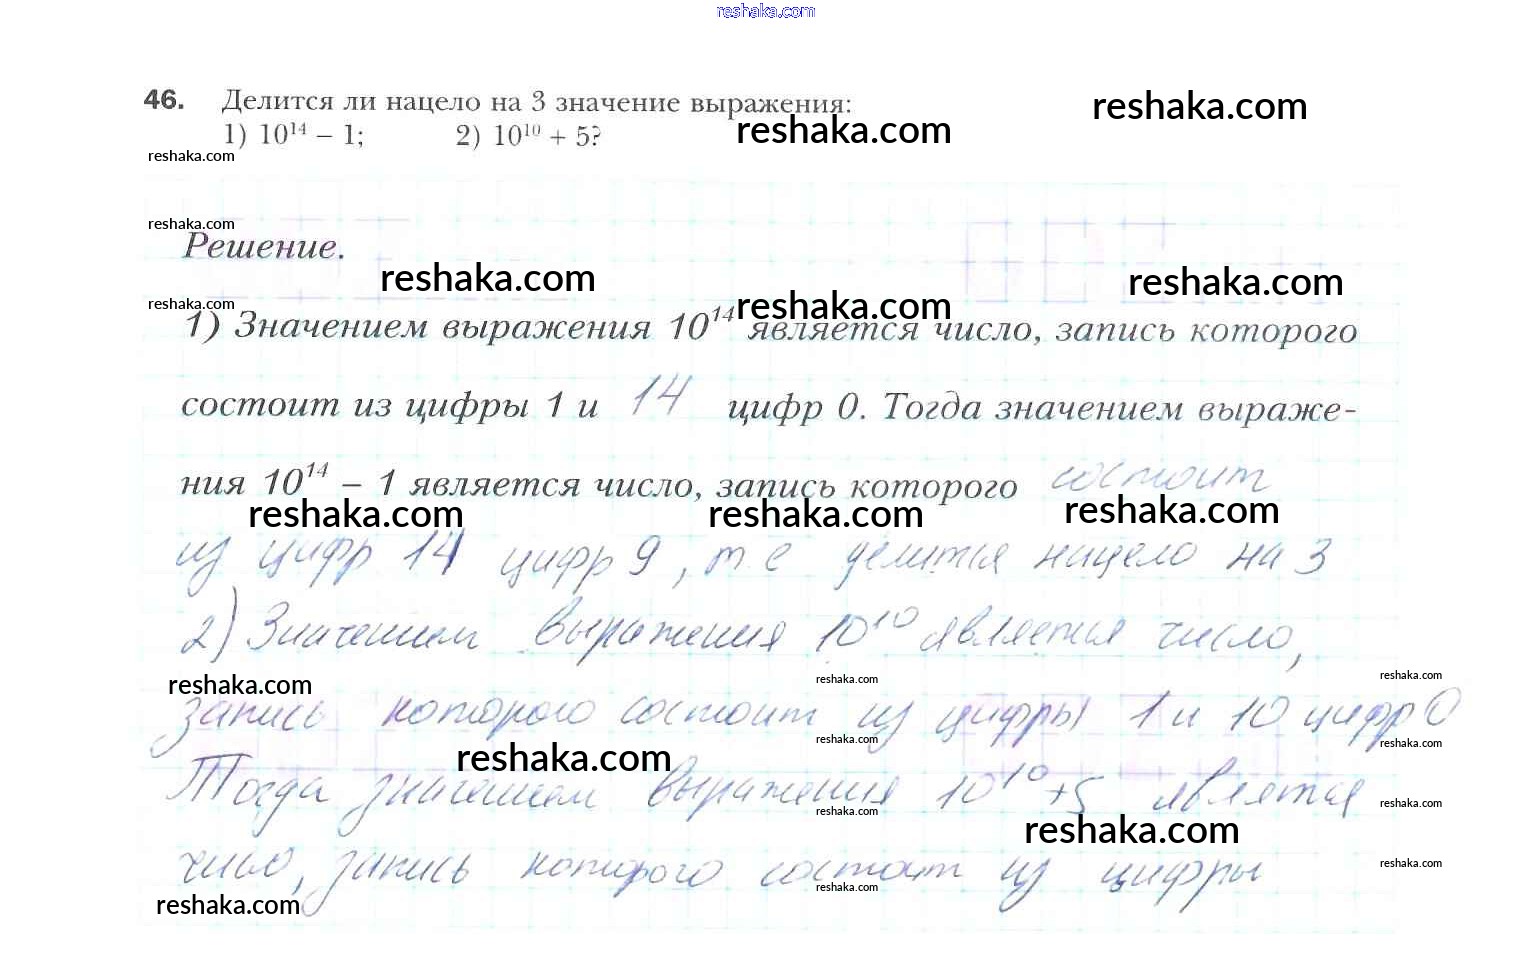 reshaka.com
46. Делится ли нацело на 3 значение выражения:
reshaka.com
reshaka.com
1) 10¹⁴ – 1; 2) 10¹⁰ + 5?
reshaka.com
reshaka.com
Решение.
reshaka.com
reshaka.com
reshaka.com
reshaka.com
1) Значением выражения 10¹⁴ является число, запись которого
состоит из цифры 1 и 14 цифр 0. Тогда значением выраже-
ния 10¹⁴ – 1 является число, запись которого состоит
reshaka.com
reshaka.com
reshaka.com
из цифр 14 цифр 9, т е делится нацело на 3
2) Значением выражения 10¹⁰ является число,
reshaka.com
reshaka.com
reshaka.com
запись которого состоит из цифры 1 и 10 цифр 0
reshaka.com
reshaka.com
reshaka.com
Тогда значением выражения 10¹⁰+5 является
reshaka.com
reshaka.com
reshaka.com
число, запись которого состоит из цифры
reshaka.com
reshaka.com
reshaka.com